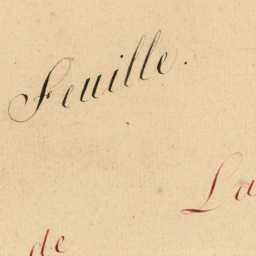 Feuille.
La
de